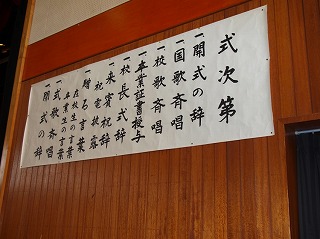 式次第
一開式の辞
一国歌斉唱
一校歌斉唱
一卒業証書授与
一校長式辞
一来賓祝辞
祝電披露
一贈る言葉
在校生の言葉
卒業生の言葉
一式歌斉唱
一閉式の辞